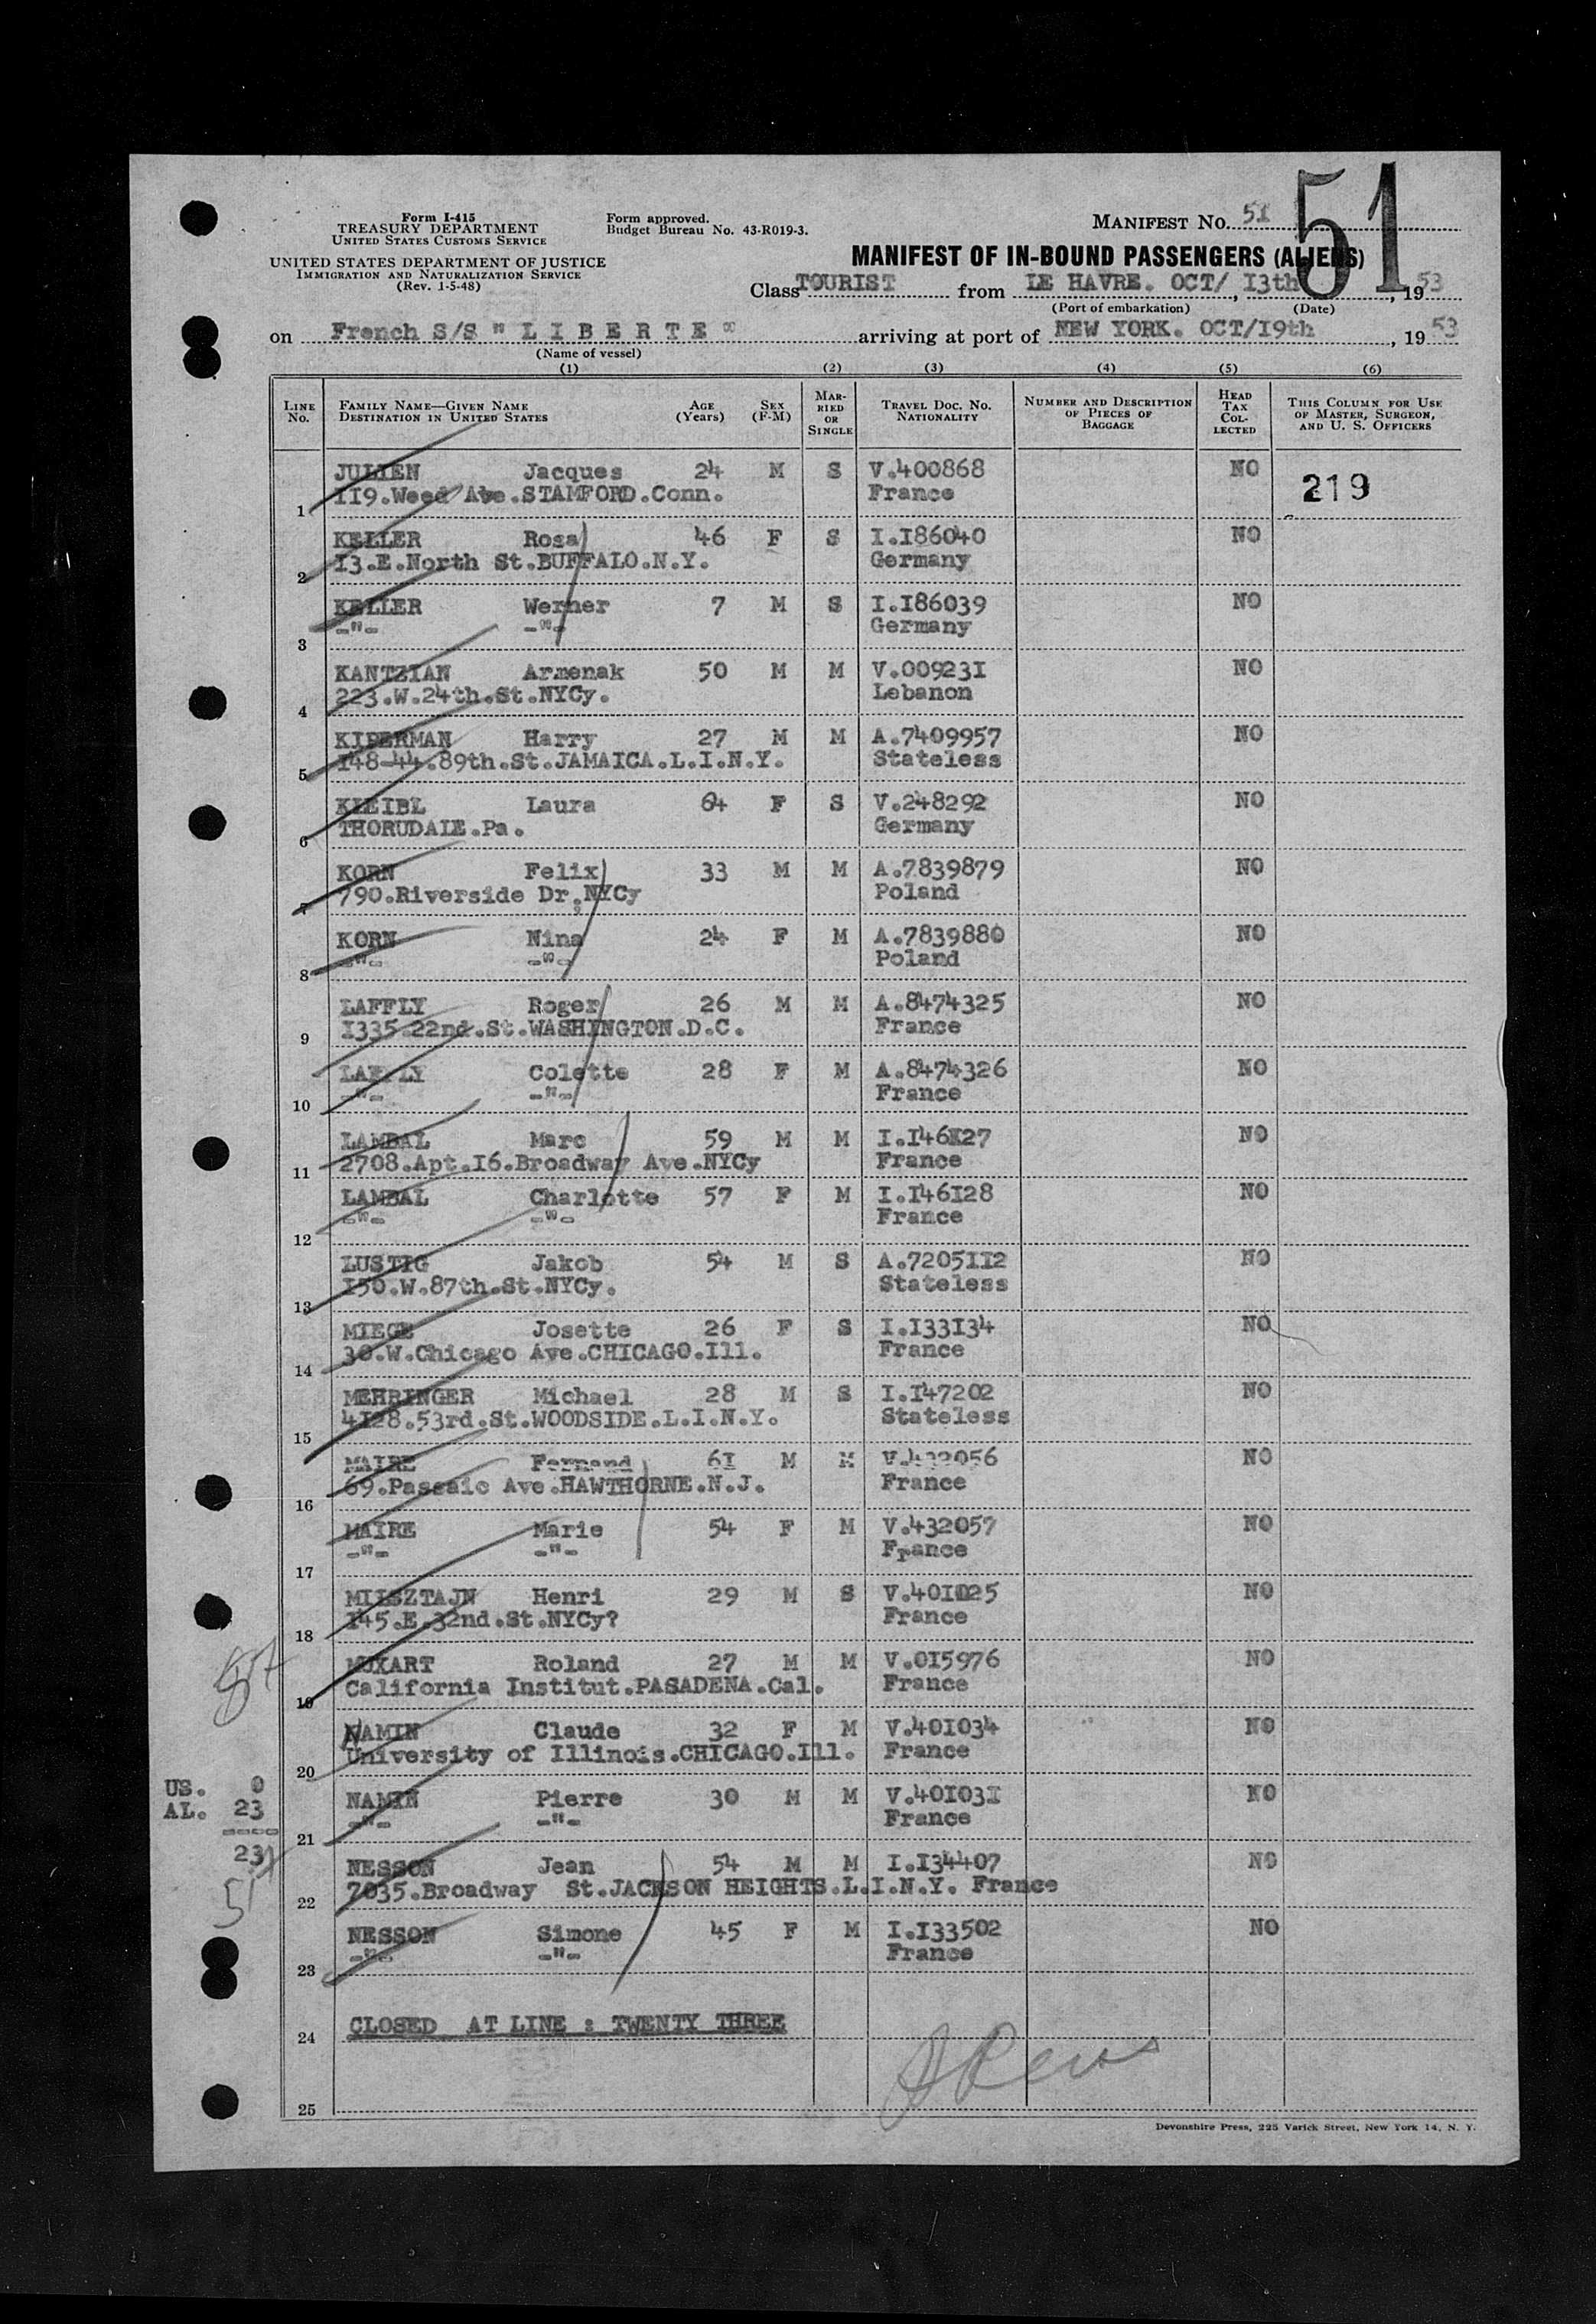 Form I-415
TREASURY DEPARTMENT
UNITED STATES CUSTOMS SERVICE
UNITED STATES DEPARTMENT OF JUSTICE
IMMIGRATION AND NATURALIZATION SERVICE
(Rev. 1-5-48)
Form approved.
Budget Bureau No. 43-R019-3.
MANIFEST NO. 51
51
MANIFEST OF IN-BOUND PASSENGERS (ALIENS)
Class TOURIST from LE HAVRE. OCT/, 13th, 1953
(Port of embarkation) (Date)
on French S/S " L I B E R T E " arriving at port of NEW YORK. OCT/19th, 1953
(Name of vessel)
(1) (2) (3) (4) (5) (6)
LINE No. FAMILY NAME—GIVEN NAME DESTINATION IN UNITED STATES AGE (Years) SEX (F-M) MARRIED OR SINGLE TRAVEL DOC. NO. NATIONALITY NUMBER AND DESCRIPTION OF PIECES OF BAGGAGE HEAD TAX COLLECTED THIS COLUMN FOR USE OF MASTER, SURGEON, AND U. S. OFFICERS
JULIEN Jacques 24 M S V.400868 NO 219
1 119.Weed Ave.STAMFORD.Conn. France
KELLER Rosa 46 F S I.186040 NO
2 13.E.North St.BUFFALO.N.Y. Germany
KELLER Werner 7 M S I.186039 NO
3 -"- -"- Germany
KANTZIAN Armenak 50 M M V.009231 NO
4 223.W.24th.St.NYCy. Lebanon
KIPERMAN Harry 27 M M A.7409957 NO
5 148-44.89th.St.JAMAICA.L.I.N.Y. Stateless
KLEIBL Laura 64 F S V.248292 NO
6 THORUDALE.Pa. Germany
KORN Felix 33 M M A.7839879 NO
7 790.Riverside Dr.NYCy Poland
KORN Nina 24 F M A.7839880 NO
8 -"- -"- Poland
LAFFLY Roger 26 M M A.8474325 NO
9 1335.22nd.St.WASHINGTON.D.C. France
LAFFLY Colette 28 F M A.8474326 NO
10 -"- -"- France
LAMBAL Marc 59 M M I.146127 NO
11 2708.Apt.16.Broadway Ave.NYCy France
LAMBAL Charlotte 57 F M I.146128 NO
12 -"- -"- France
LUSTIG Jakob 54 M S A.7205112 NO
13 150.W.87th.St.NYCy. Stateless
MIEGE Josette 26 F S I.133134 NO
14 30.W.Chicago Ave.CHICAGO.Ill. France
MEHRINGER Michael 28 M S I.147202 NO
15 4128.53rd.St.WOODSIDE.L.I.N.Y. Stateless
MAIRE Fernand 61 M M V.432056 NO
16 69.Passaic Ave.HAWTHORNE.N.J. France
MAIRE Marie 54 F M V.432057 NO
17 -"- -"- France
MILSZTAJN Henri 29 M S V.401025 NO
18 145.E.32nd.St.NYCy? France
MUXART Roland 27 M M V.015976 NO
19 California Institut.PASADENA.Cal. France
NAMIN Claude 32 F M V.401034 NO
20 University of Illinois.CHICAGO.Ill. France
NAMIN Pierre 30 M M V.401031 NO
21 -"- -"- France
NESSON Jean 54 M M I.134407 NO
22 7035.Broadway St.JACKSON HEIGHTS.L.I.N.Y. France
NESSON Simone 45 F M I.133502 NO
23 -"- -"- France
24 CLOSED AT LINE : TWENTY THREE
25
US. 0
AL. 23
----
23
51
Devonshire Press, 225 Varick Street, New York 14, N. Y.